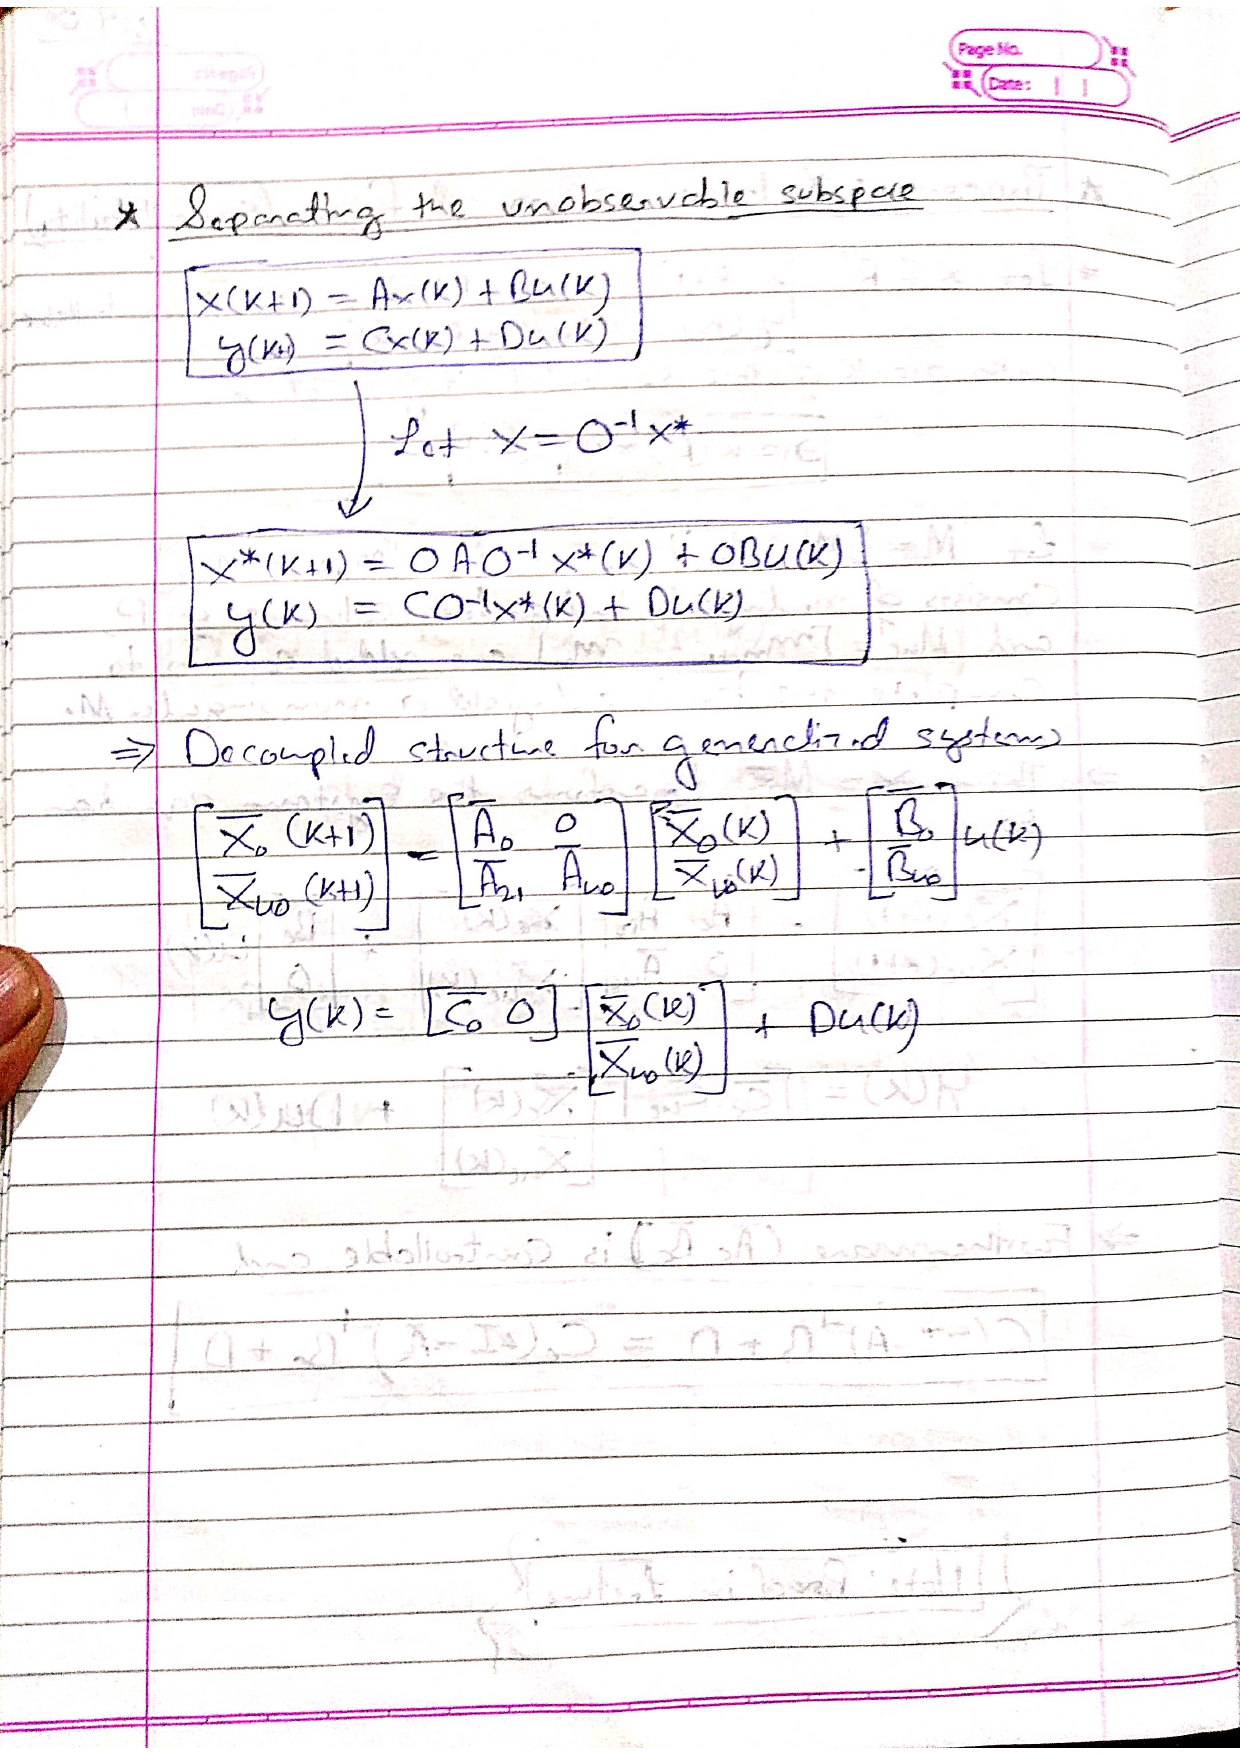 Page No.
Date: | |
* Separating the unobservable subspace
x(k+1) = Ax(k) + Bu(k)
y(k+1) = Cx(k) + Du(k)
Let x = O⁻¹x*
x*(k+1) = OAO⁻¹x*(k) + OBu(k)
y(k) = CO⁻¹x*(k) + Du(k)
⇒ Decoupled structure for generalized systems
[X̄o (k+1) X̄uo (k+1)] = [Āo 0 Ā21 Āuo] [X̄o(k) X̄uo(k)] + [B̄o B̄uo] u(k)
y(k) = [C̄o 0] [X̄o(k) X̄uo(k)] + Du(k)